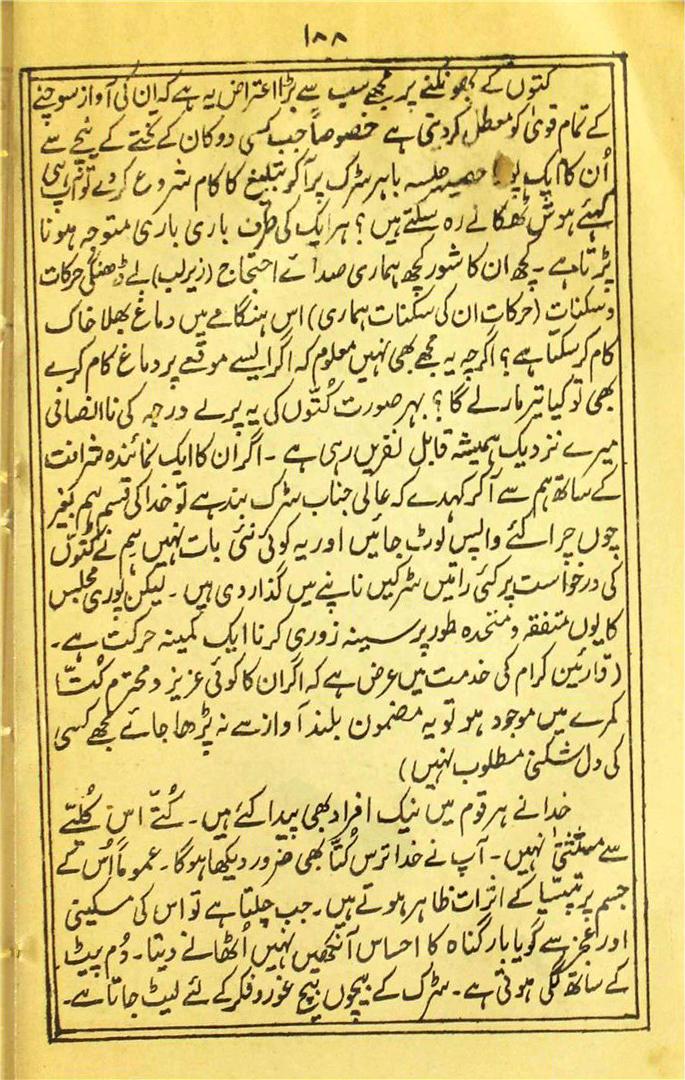 ۱۸۸
کتوں کے بھونکنے پر مجھے سب سے بڑا اعتراض یہ ہے کہ ان کی آواز سوچنے
کے تمام قویٰ کو معطل کر دیتی ہے خصوصاً جب کسی دوکان کے تختے کے نیچے سے
اُن کا ایک پورا خفیہ جلسہ باہر سڑک پر آکر تبلیغ کا کام شروع کر دے تو آپ ہی
کہئے ہوش ٹھکانے رہ سکتے ہیں ؟ ہر ایک کی طرف باری باری متوجہ ہونا
پڑتا ہے ۔ کچھ ان کا شور کچھ ہماری صدائے احتجاج (زیرلب) بے ڈھنگی حرکات
و سکنات (حرکات ان کی سکنات ہماری) اس ہنگامے میں دماغ بھلا خاک
کام کر سکتا ہے ؟ اگرچہ یہ مجھے بھی نہیں معلوم کہ اگر ایسے موقعے پر دماغ کام کرے
بھی تو کیا تیر مارلے گا ؟ بہر صورت کُتّوں کی یہ پرلے درجہ کی ناانصافی
میرے نزدیک ہمیشہ قابل نفریں رہی ہے ۔ اگر ان کا ایک نمائندہ شرافت
کے ساتھ ہم سے آکر کہدے کہ عالی جناب سڑک بند ہے تو خدا کی قسم ہم بغیر
چوں چرا کئے واپس لوٹ جائیں اور یہ کوئی نئی بات نہیں ہم نے کُتّوں
کی درخواست پر کئی راتیں سڑکیں ناپنے میں گذار دی ہیں ۔ لیکن پوری مجلس
کا یوں متفقہ و متحدہ طور پر سینہ زوری کرنا ایک کمینہ حرکت ہے ۔
(قارئین کرام کی خدمت میں عرض ہے کہ اگر ان کا کوئی عزیز و محترم کُتّا
کمرے میں موجود ہو تو یہ مضمون بلند آواز سے نہ پڑھا جائے مجھے کسی
کی دل شکنی مطلوب نہیں)
خدا نے ہر قوم میں نیک افراد بھی پیدا کئے ہیں ۔ کُتّے اس کلّیے
سے مستثنیٰ نہیں ۔ آپ نے خدا ترس کُتّا بھی ضرور دیکھا ہوگا ۔ عموماً اُس کے
جسم پر تپسّیا کے اثرات ظاہر ہوتے ہیں ۔ جب چلتا ہے تو اس کی مسکینی
اور عجز سے گویا بار گناہ کا احساس آنکھیں نہیں اُٹھانے دیتا ۔ دُم پیٹ
کے ساتھ لگی ہوتی ہے ۔ سڑک کے بیچوں بیچ غور و فکر کے لئے لیٹ جاتا ہے ۔